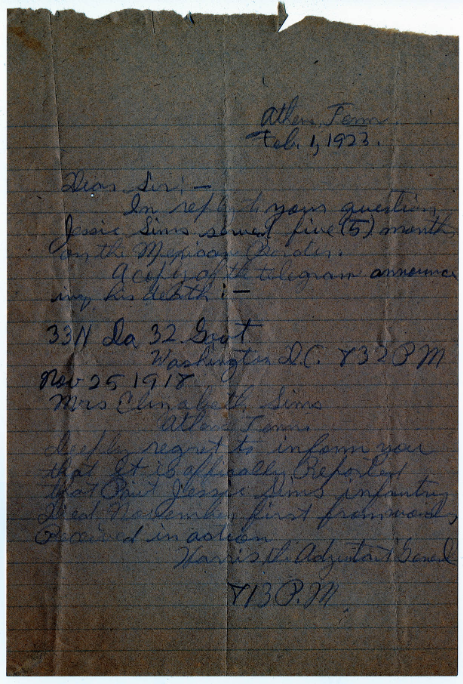 Athens, Tenn
Feb. 1, 1923.
Dear Sir: —
In reply to your question,
Jessie Sims served five (5) months
on the Mexican Border.
A copy of the telegram announc
ing his death: —
33 Govt
Washington D.C. 732 PM
Nov 25 1918
Mrs Elizabeth Sims
Athens Tenn
Deeply regret to inform you
that It is officially Reported
that Privt Jessie Sims infantry
Died November first from wounds
Received in action
Harris Adjutant General
713 P.M.